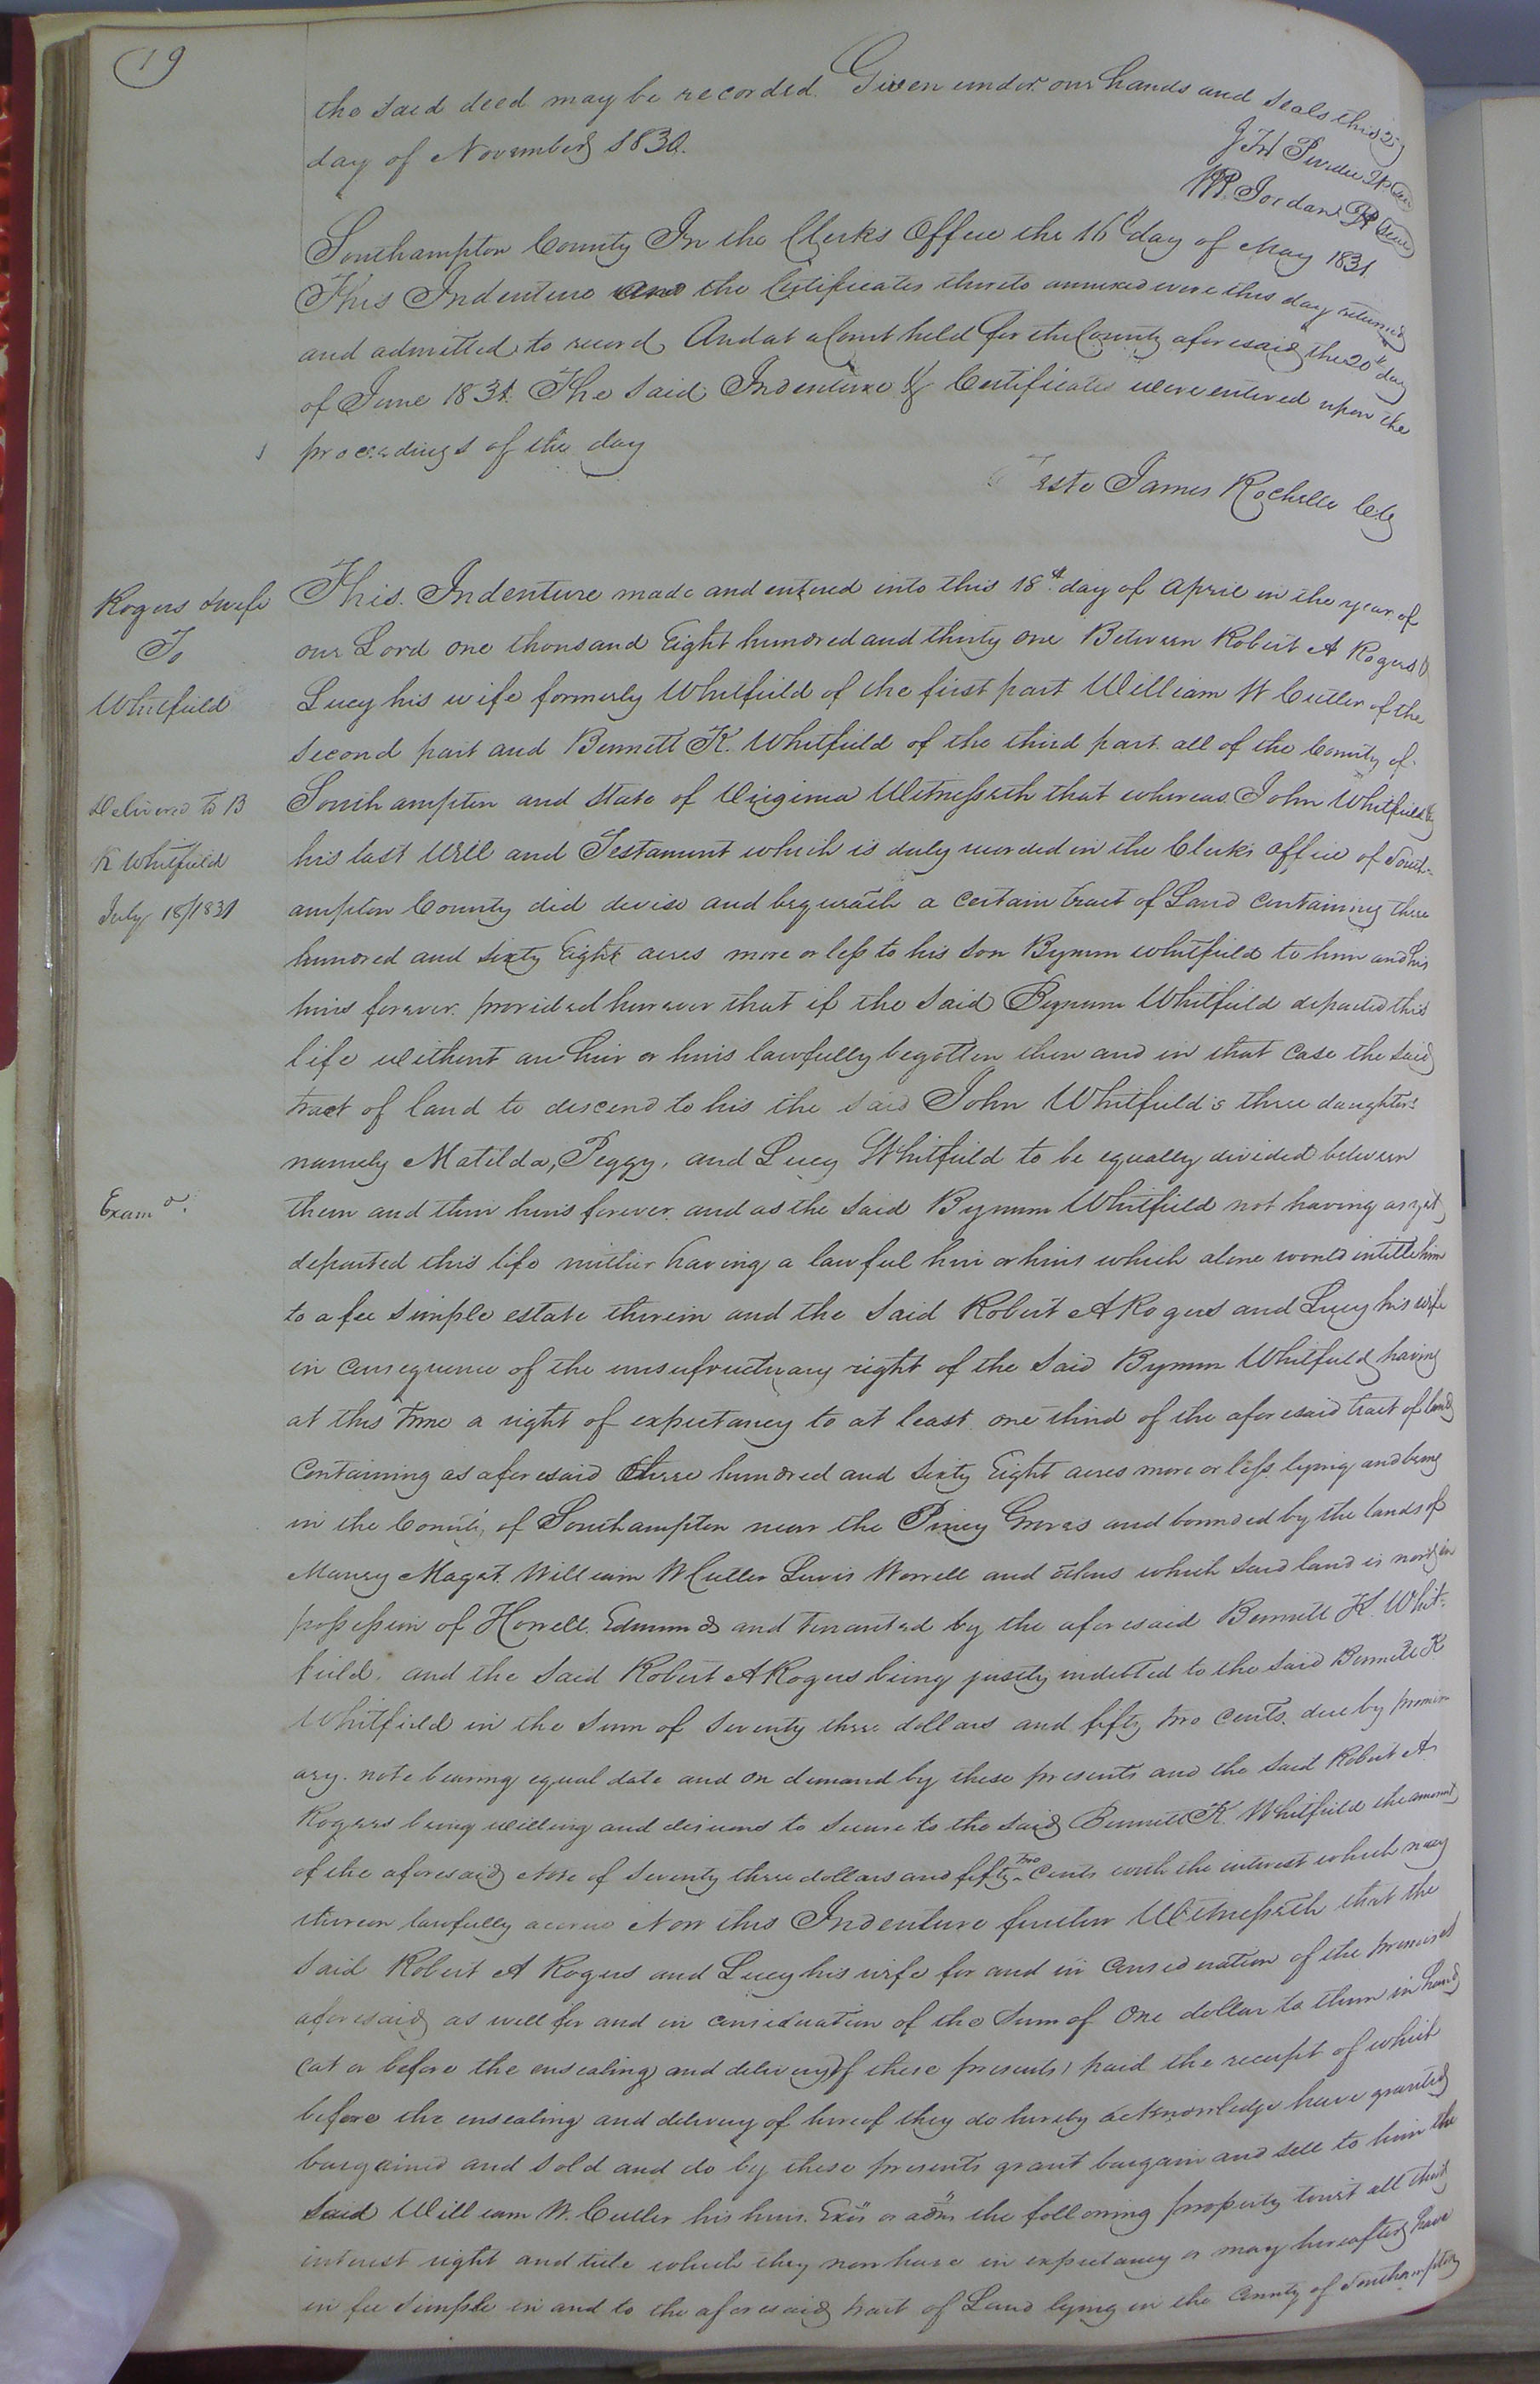 19
the said deed may be recorded. Given under our hands and seals this 25
day of November 1830.
J H Purdie JP Seal
W P. Jordan JP Seal
Southampton County In the Clerks Office the 16th day of May 1831
This Indenture and the Certificates thereto annexed were this day returned
and admitted to record And at a Court held for the County aforesaid the 20th day
of June 1831. The said Indenture & Certificates were entered upon the
proceedings of the day
Teste James Rochelle Clk
Rogers & wife
To
Whitfield
Delivered to B
K Whitfield
July 18/1831
Exam d.
This Indenture made and entered into this 18th day of April in the year of
our Lord one thousand Eight hundred and thirty one Between Robert A Rogers &
Lucy his wife formerly Whitfield of the first part William W Cutler of the
second part and Bennett K. Whitfield of the third part all of the County of
Southampton and State of Virginia Witnesseth that whereas John Whitfield by
his last Will and Testament which is duly recorded in the Clerks office of South-
ampton County did devise and bequeath a certain tract of Land containing three
hundred and sixty Eight acres more or less to his son Bynum Whitfield to him and his
heirs forever. provided however that if the said Bynum Whitfield departed this
life without an heir or heirs lawfully begotten then and in that case the said
tract of land to descend to his the said John Whitfield's three daughters
namely Matilda, Peggy, and Lucy Whitfield to be equally divided between
them and their heirs forever. and as the said Bynum Whitfield not having as yet
departed this life neither having a lawful heir or heirs which alone would intitle him
to a fee simple estate therein and the said Robert A Rogers and Lucy his wife
in consequence of the unsufructuary right of the said Bynum Whitfield having
at this time a right of expectancy to at least one third of the aforesaid tract of land
containing as aforesaid three hundred and sixty Eight acres more or less lying and being
in the County of Southampton near the Piney Groves and bounded by the lands of
Maney Maget. William W Cutler Lewis Worrell and others which said land is now in
possession of Howell Edmunds and tenanted by the aforesaid Bennett K. Whit-
field. and the said Robert A Rogers being justly indebted to the said Bennett K
Whitfield in the sum of seventy three dollars and fifty two cents. due by promiss
ary. note bearing equal date and on demand by these presents and the said Robert A
Rogers being willing and desirous to secure to the said Bennett K. Whitfield the amount
of the aforesaid Note of seventy three dollars and fifty two cents with the interest which may
thereon lawfully accrue Now this Indenture further Witnesseth that the
said Robert A Rogers and Lucy his wife for and in consideration of the premises
aforesaid as well for and in consideration of the sum of one dollar to them in hand
(at or before the ensealing and delivery of these presents) paid the receipt of which
before the ensealing and delivery of hereof they do hereby acknowledge have granted
bargained and sold and do by these presents grant bargain and sell to him the
said William W. Cutler his heirs. Exrs or adms the following property towit all their
interest right and title which they now have in expectancy or may hereafter have
in fee simple in and to the aforesaid tract of Land lying in the County of Southampton